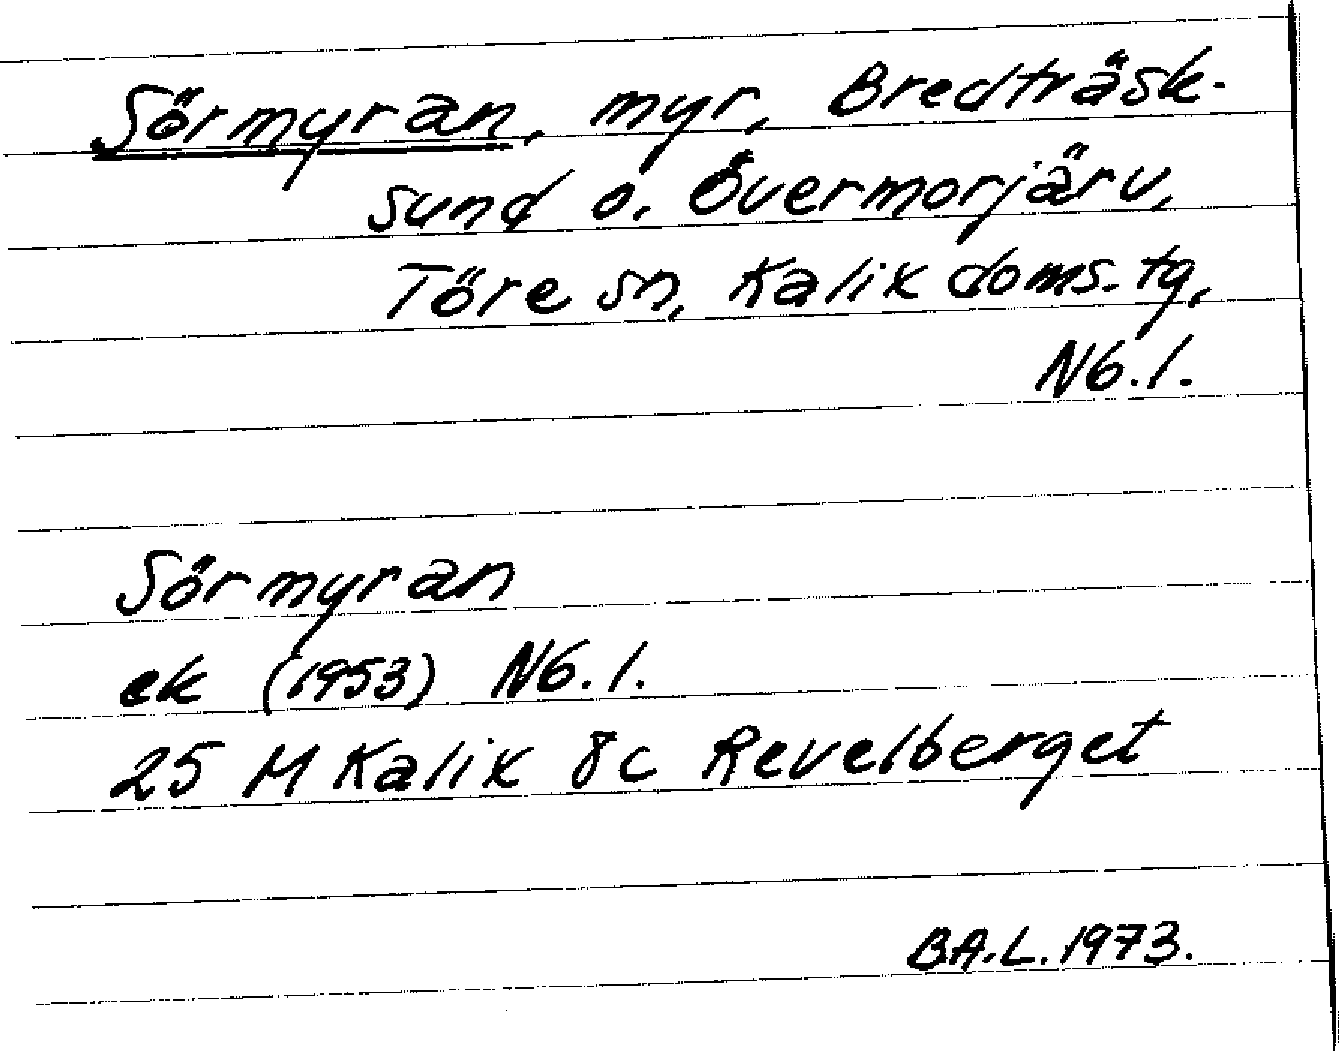 Sörmyran, myr, Bredträsk-
sund o. Övermorjärv,
Töre sn, Kalix doms. tg,
Nb. l.
Sörmyran
ek (1953) Nb. l.
25 M Kalix 8c Revelberget
BA.L. 1973.